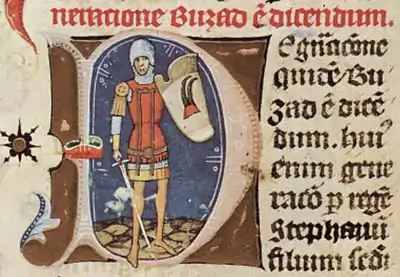 neracione Buzad ē dicendum.
De gn̄acōne
quidē Bu
zad ē dicē
dum. huiꝰ
enim gene
racō ꝑ regē
stephanū
filium sedi